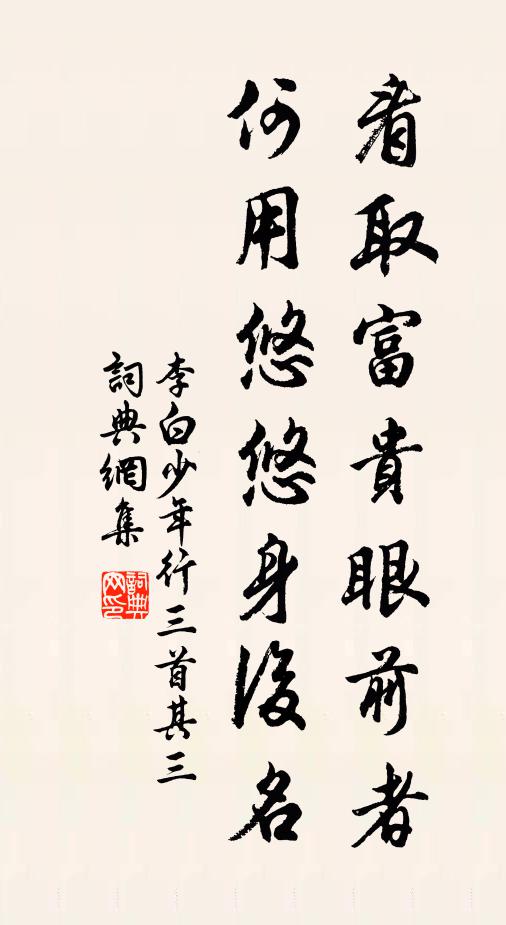 看取富貴眼前者
何用悠悠身後名
李白少年行三首其三
詞典網集
詞典網印